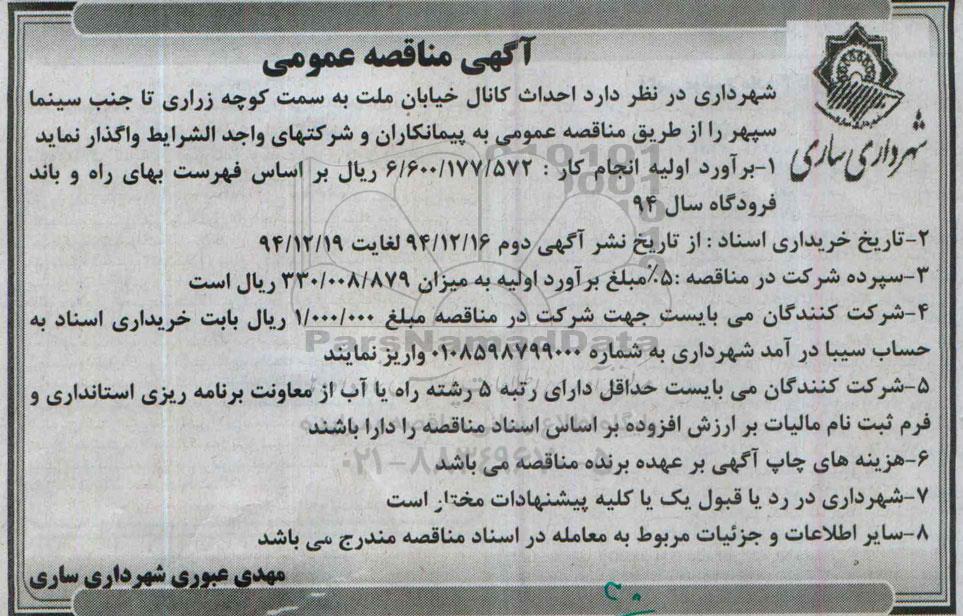 آگهی مناقصه عمومی
شهرداری ساری
شهرداری در نظر دارد احداث کانال خیابان ملت به سمت کوچه زراری تا جنب سینما
سپهر را از طریق مناقصه عمومی به پیمانکاران و شرکتهای واجد الشرایط واگذار نماید
۱-برآورد اولیه انجام کار : ۶/۶۰۰/۱۷۷/۵۷۲ ریال بر اساس فهرست بهای راه و باند
فرودگاه سال ۹۴
۲-تاریخ خریداری اسناد : از تاریخ نشر آگهی دوم ۹۴/۱۲/۱۶ لغایت ۹۴/۱۲/۱۹
۳-سپرده شرکت در مناقصه :۵٪مبلغ برآورد اولیه به میزان ۳۳۰/۰۰۸/۸۷۹ ریال است
۴-شرکت کنندگان می بایست جهت شرکت در مناقصه مبلغ ۱/۰۰۰/۰۰۰ ریال بابت خریداری اسناد به
حساب سیبا در آمد شهرداری به شماره ۰۱۰۸۵۹۸۷۹۹۰۰۰ واریز نمایند
۵-شرکت کنندگان می بایست حداقل دارای رتبه ۵ رشته راه یا آب از معاونت برنامه ریزی استانداری و
فرم ثبت نام مالیات بر ارزش افزوده بر اساس اسناد مناقصه را دارا باشند
۶-هزینه های چاپ آگهی بر عهده برنده مناقصه می باشد
۷-شهرداری در رد یا قبول یک یا کلیه پیشنهادات مختار است
۸-سایر اطلاعات و جزئیات مربوط به معامله در اسناد مناقصه مندرج می باشد
مهدی عبوری شهرداری ساری
ParsNamadData
۰۲۱-۸۸۳۴۹۶۷۰